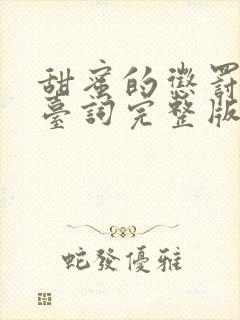 甜蜜的懲罰
臺詞完整版
蛇發優雅